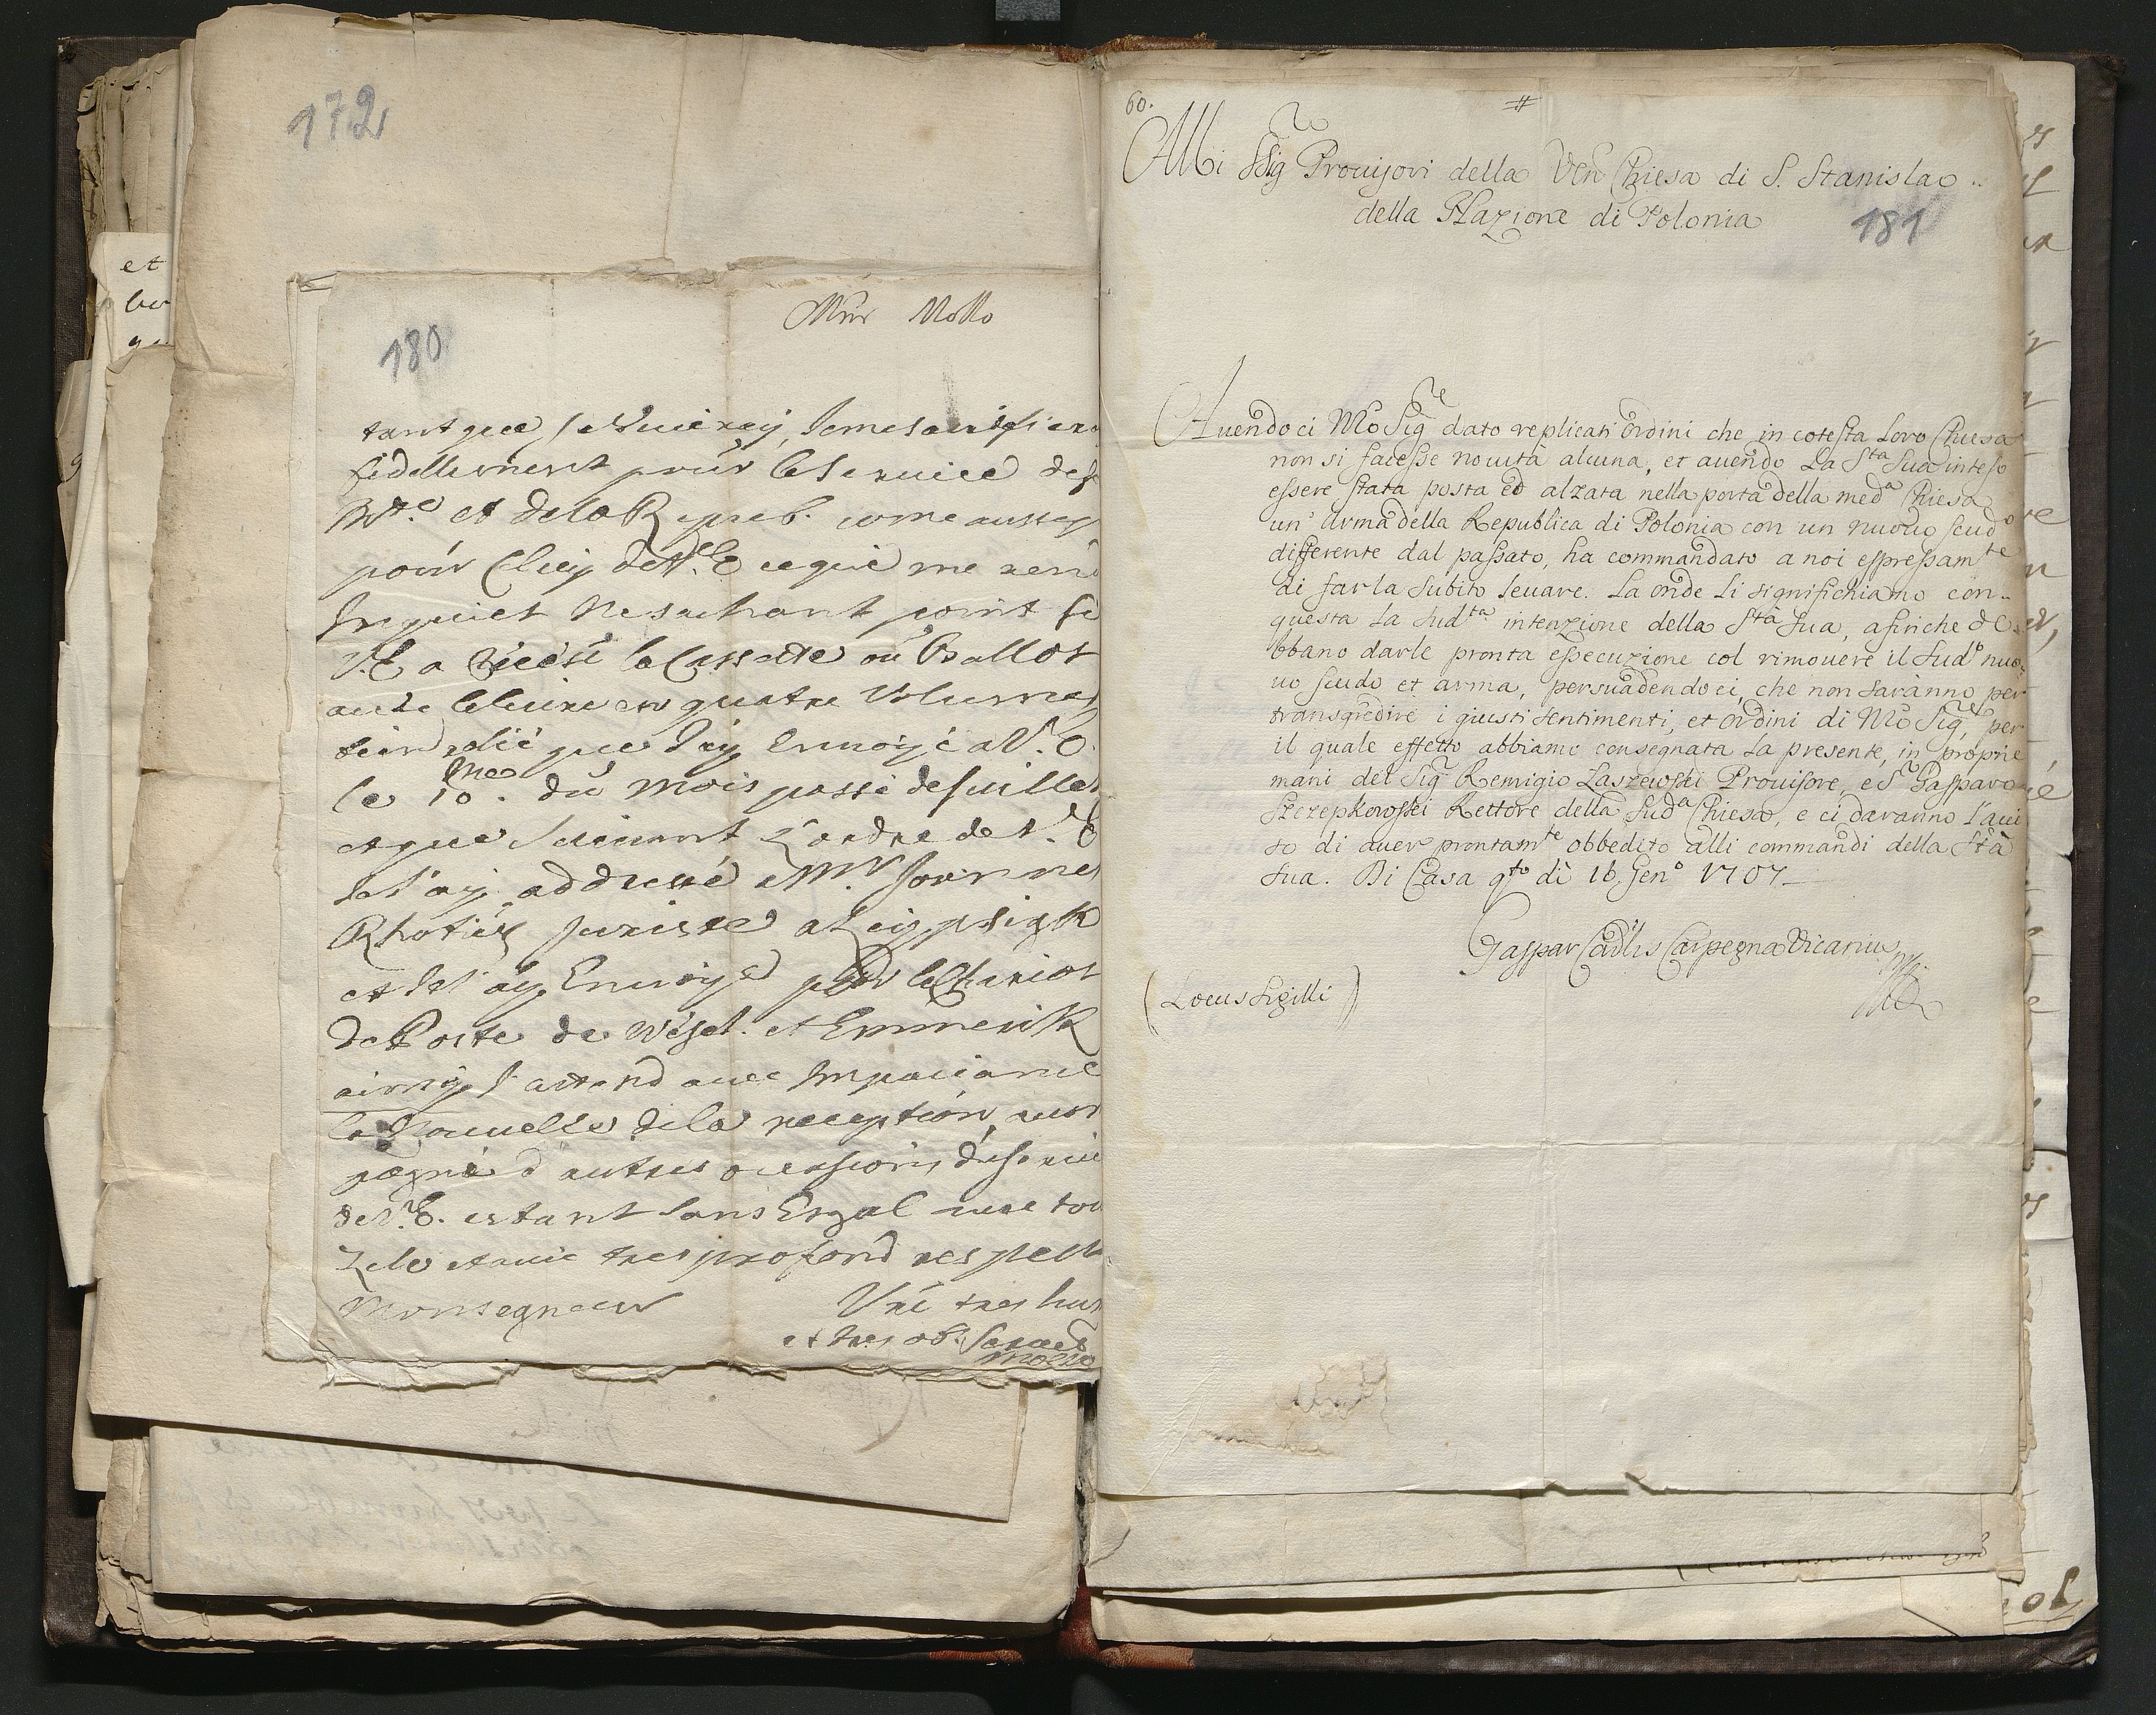 172
180
Mnr Mollo
tant que je Viueray, Je me sacrifiera
fidellement pour le Seruice de sa
Mte. et de la Repub. come aussy
pour Cluy de V.E ce qui me rend
Inquiet Ne sachant point si
V.E a récêu la Cassette où Ballot
auec le liure en quatre Volumes
bien relié que J'ay Enuoyé a V.E.
le 10me. du mois passé de Juillet
et que Suiuant L'ordre de V.E
Je l'ay addressé a Mr.
Juriste a Leipzigk
et Je l'ay Enuoyé par le Chariot
de Poste de Wésel. et Emmerik
ainsy J'attend auec Impaciance
la Nouuelle de la reception,
d'autres occasions
de V.E. estant sans Esgal auec tou
Zele et auec tres profond respect
Monsegneur Vre tres hum
et tres ob. Seruet
Mollo
60. #
Alli SSig Prouisori della Ven Chiesa di S. Stanislao ..
della Nazione di Polonia
181
Auendoci Mo Sigre dato replicati ordini che in cotesta Loro Chiesa
non si facesse nouità alcuna, et auendo La Sta Sua inteso
essere stata posta ed alzata nella porta della meda Chiesa
un' arma della Republica di Polonia con un nuouo scudo
differente dal passato, ha commandato a noi espressamte
di farla subito leuare. La onde Li significhiamo con..
questa La Sudta intenzione della Stà Sua, afinche de-
bbano darle pronta essecuzione col rimouere il Sudo nuo-
uo scudo et arma, persuadendoci, che non saranno per
transgredire i giusti sentimenti, et ordini di Mo Sigre, per
il quale effetto abbiamo consegnata La presente, in proprie
mani del Sigr Remigio Laszewski Prouisore, e Sr Gasparo
Szczepkowski Rettore della Suda Chiesa, e ci daranno l'aui
so di auer prontamte obbedito alli commandi della Stà
Sua. Di Casa qto dì 16 Geno 1707_
Gaspar Cardlis Carpegna Vicarius
(Locus Sigilli)